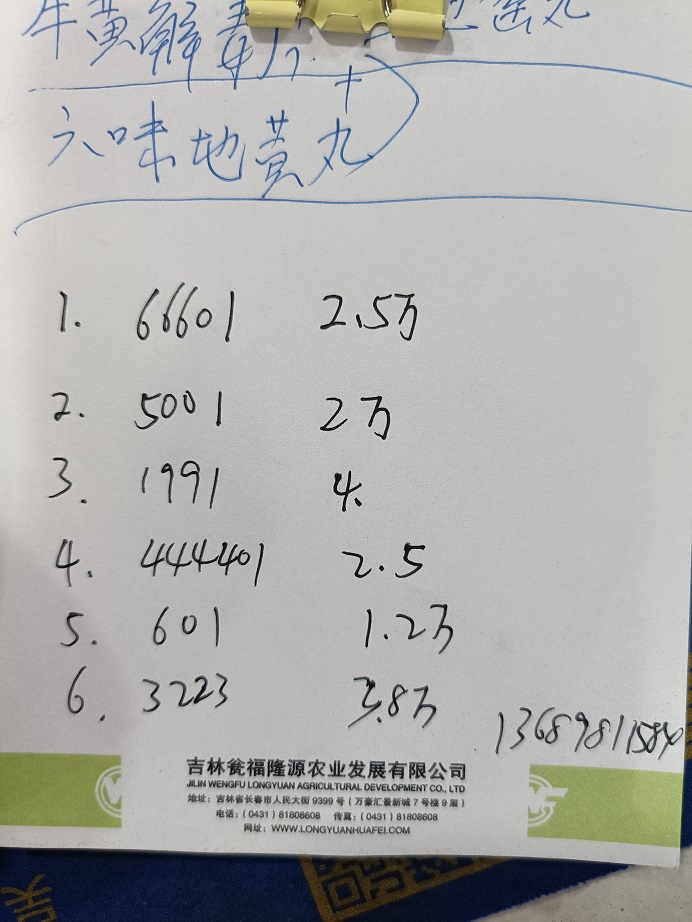 牛黄解毒片
六味地黄丸
+
1. 66601 2.5万
2. 5001 2万
3. 1991 4.
4. 444401 2.5
5. 601 1.2万
6. 3223 3.8万
吉林瓮福隆源农业发展有限公司
JILIN WENGFU LONGYUAN AGRICULTURAL DEVELOPMENT CO., LTD
地址：吉林省长春市人民大街 9399 号（万豪汇最新城 7 号楼 9 层）
电话：(0431) 81808608 传真：(0431) 81808608
网址：WWW.LONGYUANHUAFEI.COM